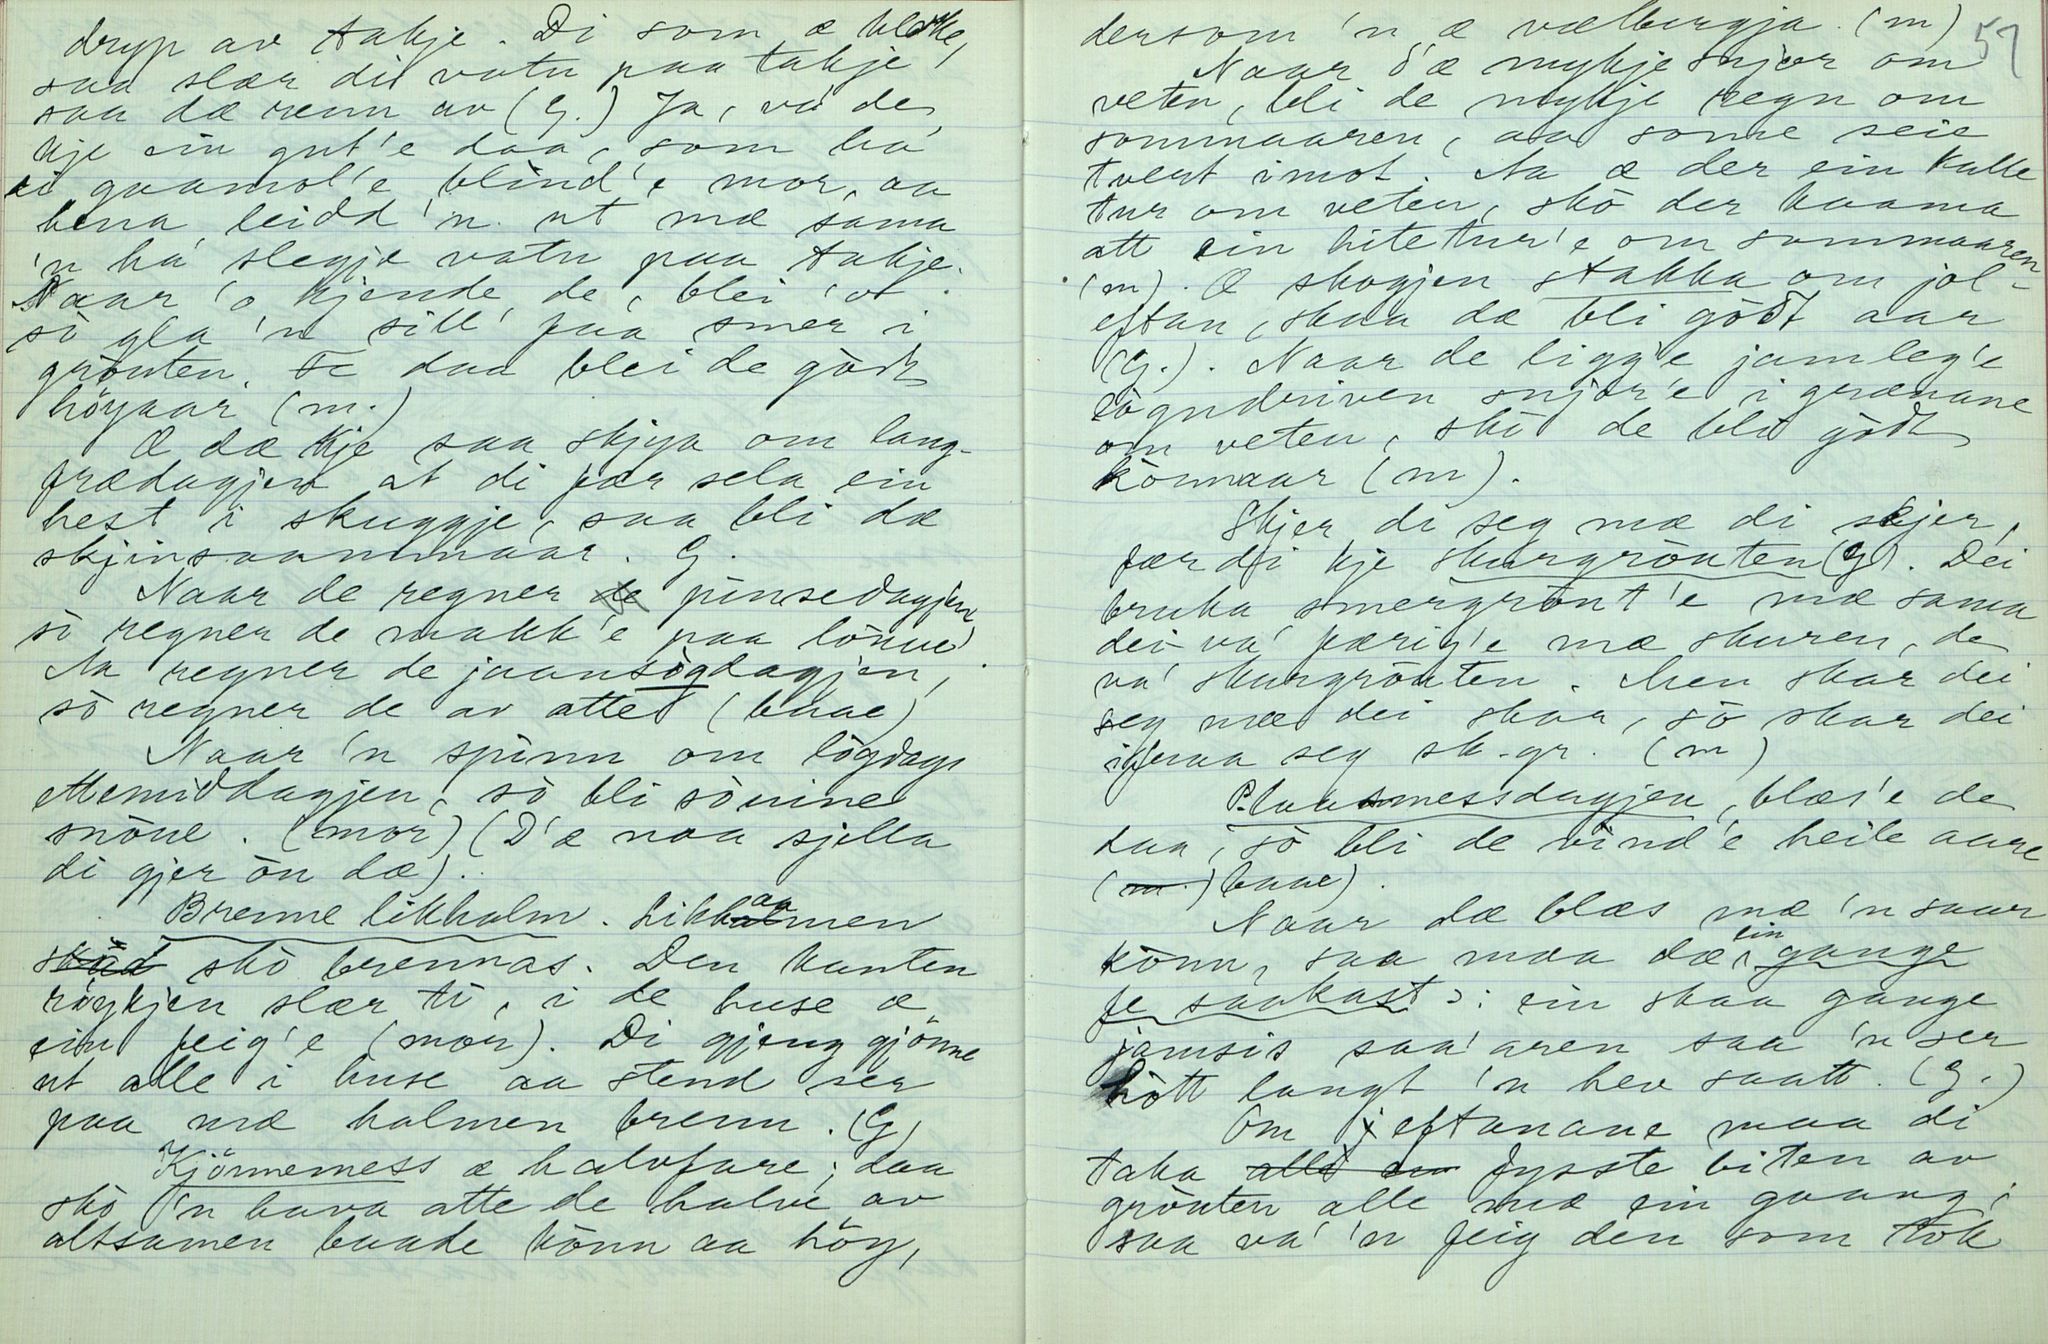 dryp av takje. Di som æ kloke,
saa slær di vatn paa takje,
saa dæ renn av (G.) Ja, va' de
kje ein gut'e daa, som ha'
ei gaamol'e blind'e mor, aa
hena leidd 'n ut mæ sama
'n ha' slegje vatn paa takje.
Naar 'o kjende de, blei 'o
sò gla 'n sill' faa smer i
gròuten. Fe daa blei de gòdt
höyaar (m.)
Æ dæ kje saa skjya om lang-
frædagjen at di fær sela ein
hest i skuggje, saa bli dæ
skjinsaammaar. G.
Naar de regner de pinsedagjen
sò regner de makk'e paa lòuve
Aa regner de jaansògdagjen,
sò regner de av atte (baae)
Naar 'n spinn om lögdags
ettemiddagjen, sò bli söuine
snöue. (mor) (D'æ noa sjella
di gjer òn dæ).
Brenne likhalm. Likhaamen
skò brennas. Den kanten
röykjen slær ti, i de huse æ
ein feig'e (mor). Di gjeng gjönne
ut alle i huse aa stend ser
paa mæ halmen brenn. (G)
Kjönnemess æ halvfare; daa
skò 'n hava atte de halve av
altsamen baade kònn aa höy,
57
dersom 'n æ vælbergja. (m)
Naar d'æ mykje snjor om
veten, bli de mykje regn om
sommaaren, aa some seie
tvert imot. Aa æ der ein kulle
tur om veten, skò der kaama
att ein hitetur'e om sommaaren
(m). Æ skogjen stakka om jol-
eftan, skaa dæ bli gòdt aar
(G.). Naar de ligg'e jamleg'e
lògndriven snjor'e i grænane
om veten, skò de bli gòdt
kònnaar (m).
Skjer di seg mæ di skjer,
fær di kje skurgròuten (G). Dei
bruka smergròut'e mæ sama
dei va' færig'e mæ skuren, de
va' skurgròuten. Men skar dei
seg mæ dei skar, sò skar dei
ifraa seg sk-gr. (m)
Plaasmessdagjen, blæs'e de
daa, sò bli de vind'e heile aare
(m.) baae).
Naar dæ blæs mæ 'n saar
kònn, saa maa dæ ein gange
fe saakast: ein skaa gange
jamsis saa'aren saa 'n ser
hòtt langt 'n hev saatt. (G.)
Om j eftanane maa di
taka alle en fysste biten av
gròuten alle mæ ein gaang;
saa va' 'n feig den som tok